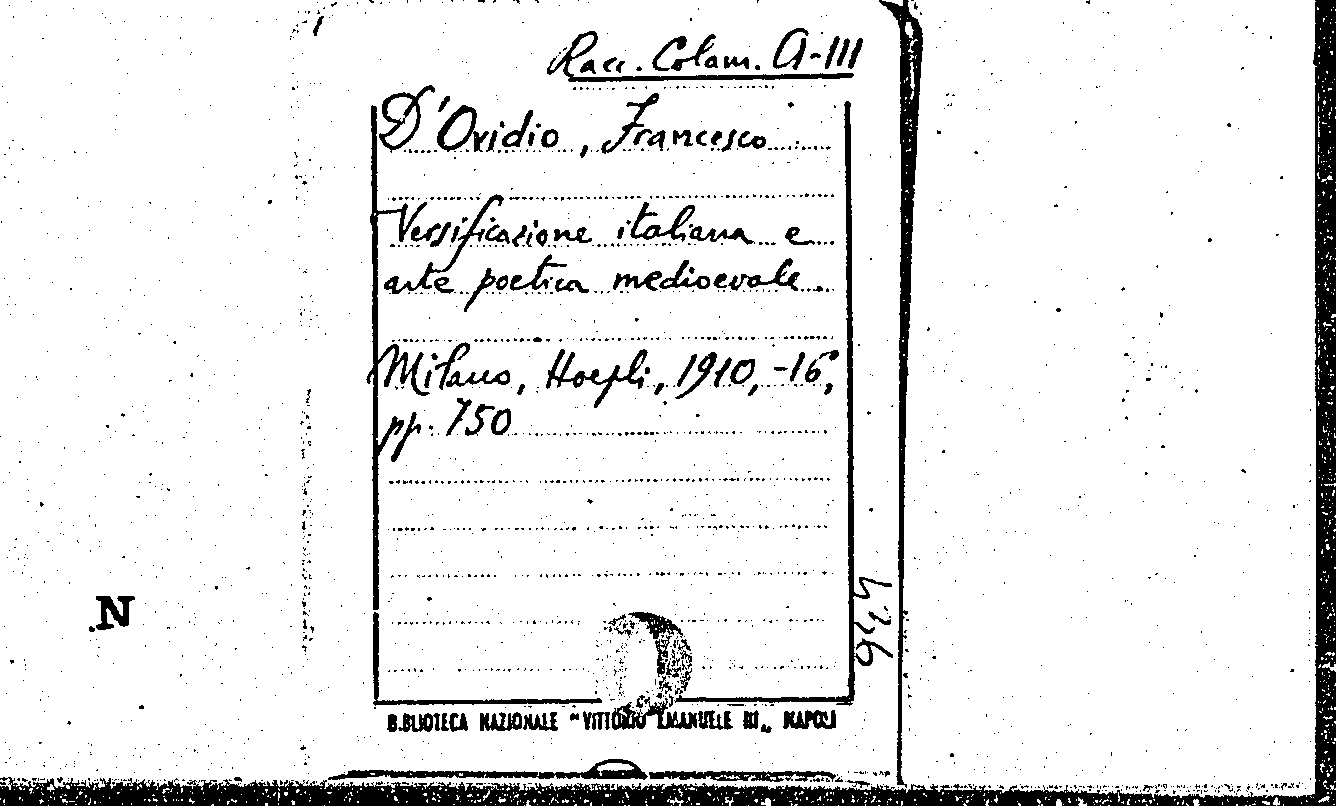 Racc. Colam. A-III
D'Ovidio, Francesco
Versificazione italiana e
arte poetica medioevale.
Milano, Hoepli, 1910, -16°,
pp. 750
N
BIBLIOTECA NAZIONALE "VITTORIO EMANUELE III„ NAPOLI